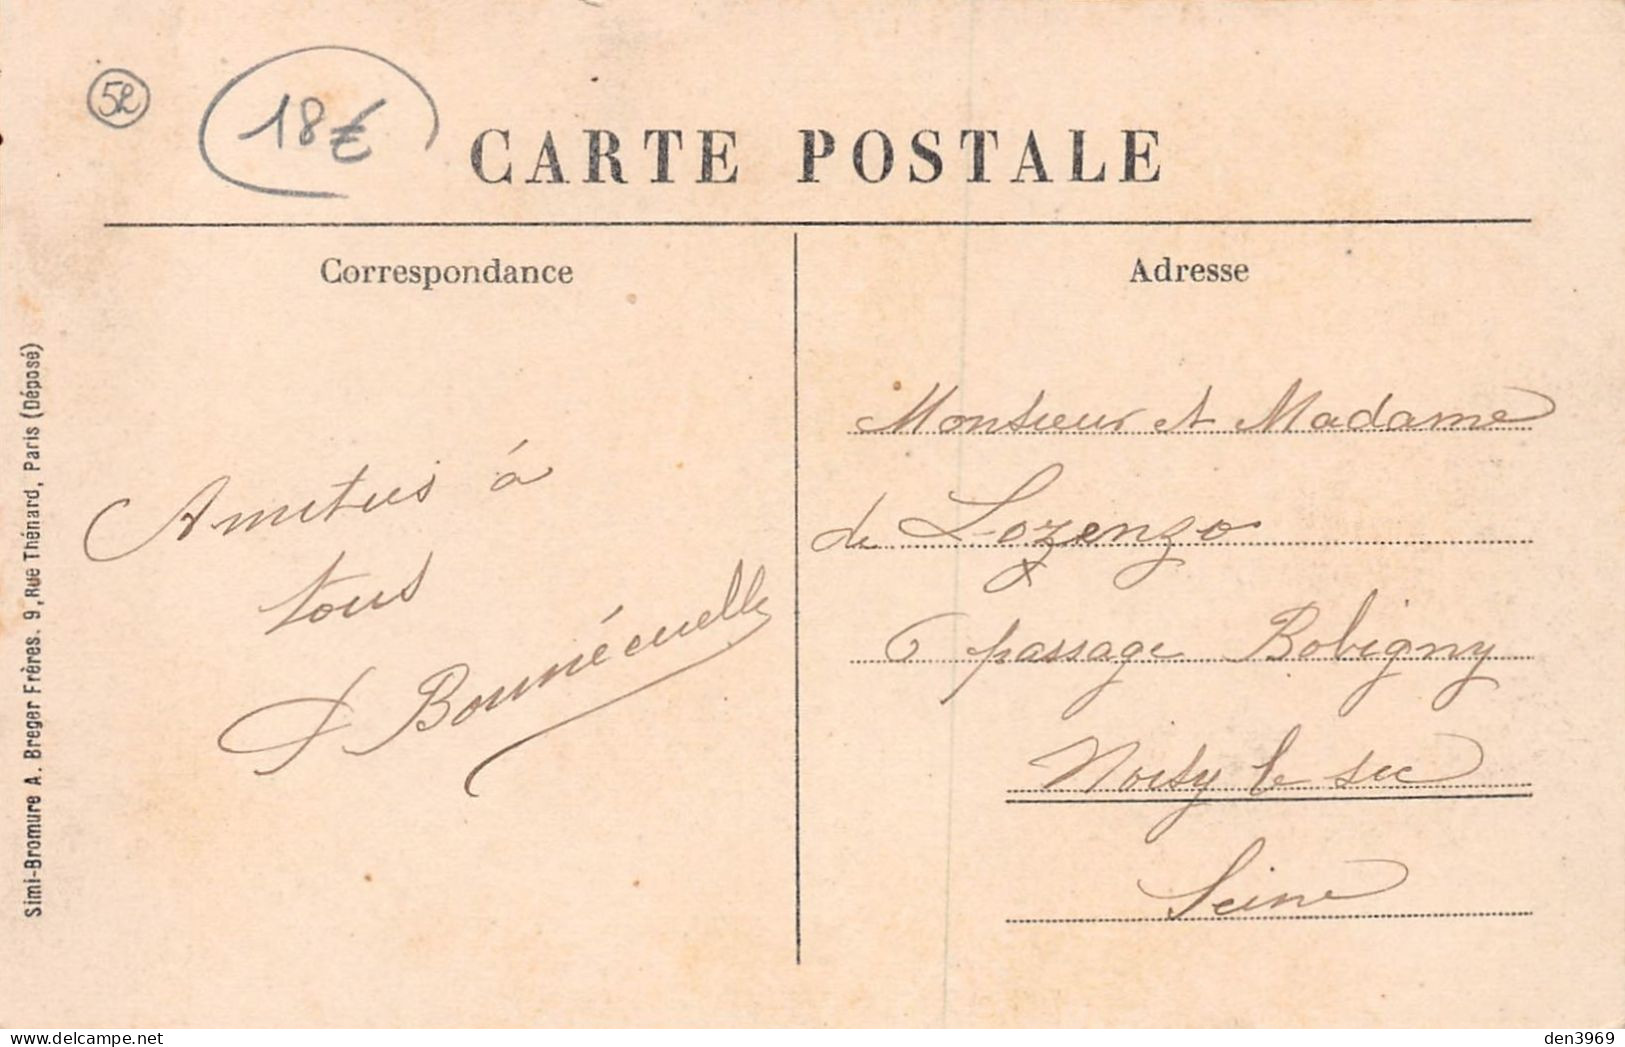 52
18€
CARTE POSTALE
Correspondance
Adresse
Amitiés à
tous
Bonnécuelle
Monsieur et Madame
de Lozenzo
6 passage Bobigny
Noisy le sec
Seine
Simi-Bromure A. Breger Frères. 9, Rue Thénard, Paris (Déposé)
den3969